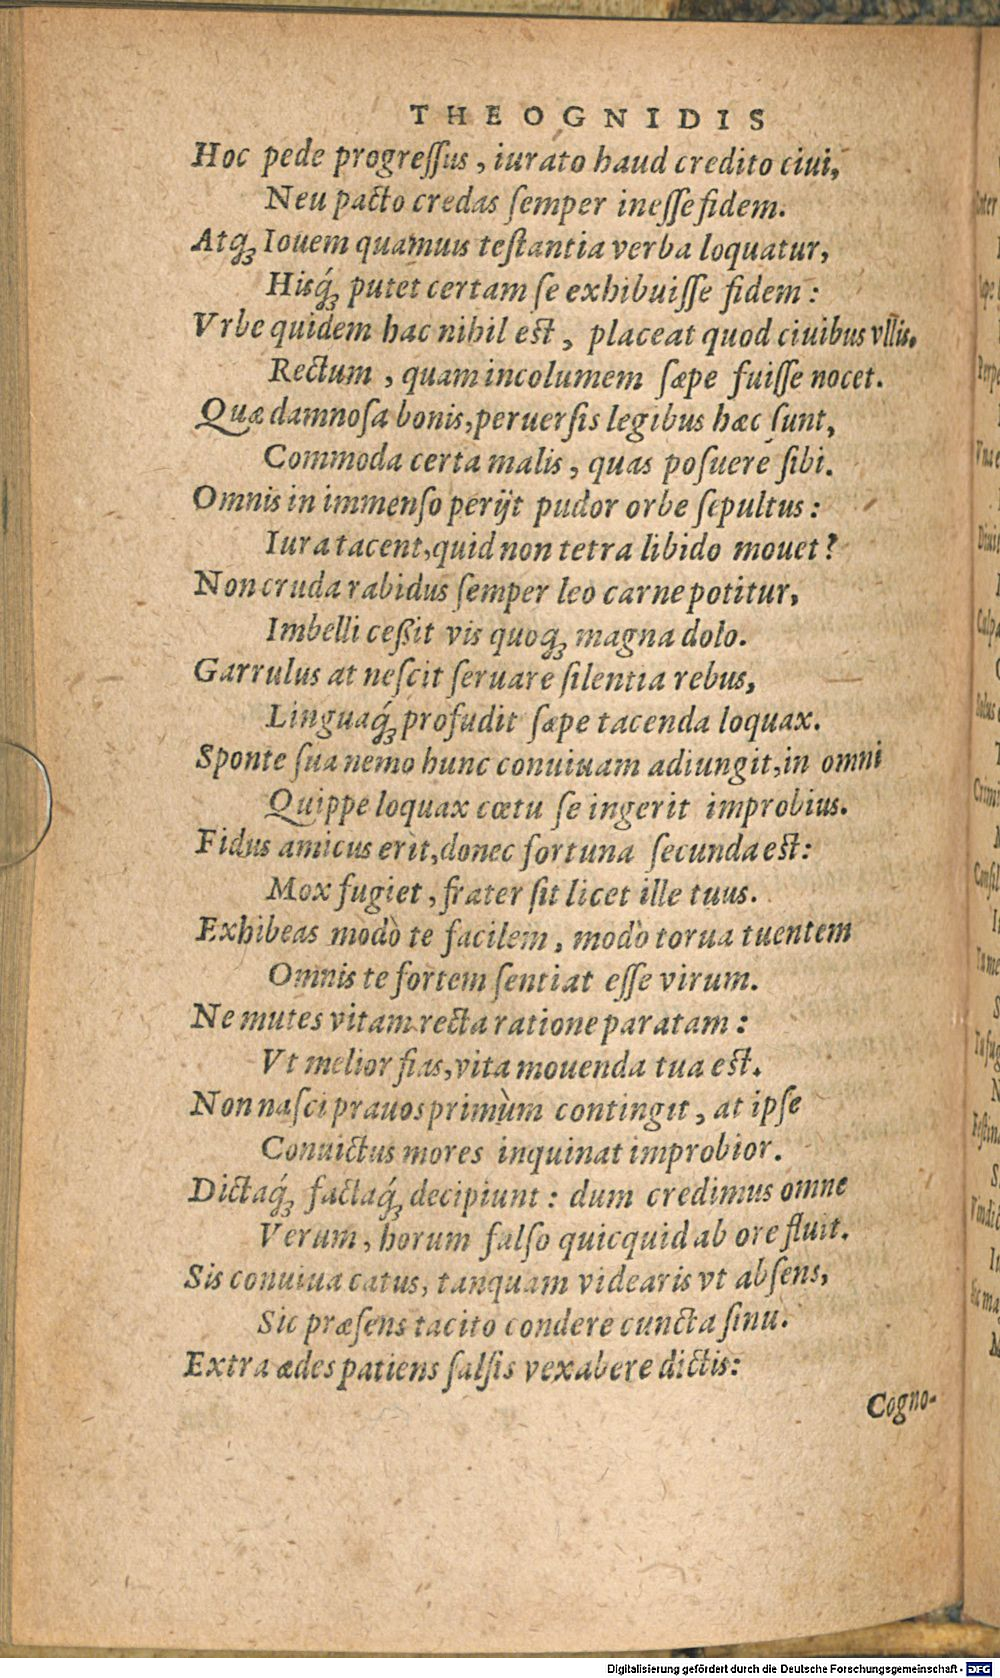 THEOGNIDIS
Hoc pede progreſſus, iurato haud credito ciui,
Neu pacto credas ſemper ineſſe fidem.
Atq́ꝫ Iouem quamuis teſtantia verba loquatur,
Hisq́ꝫ putet certam ſe exhibuiſſe fidem:
Vrbe quidem hac nihil eſt, placeat quod ciuibus vllis.
Rectum, quam incolumem ſæpe fuiſſe nocet.
Quæ damnoſa bonis, peruerſis legibus hæc ſunt,
Commoda certa malis, quas poſuere ſibi.
Omnis in immenſo perijt pudor orbe ſepultus:
Iura tacent, quid non tetra libido mouet?
Non cruda rabidus ſemper leo carne potitur,
Imbelli ceßit vis quoqꝫ magna dolo.
Garrulus at neſcit ſeruare ſilentia rebus,
Linguaq́ꝫ profudit ſæpe tacenda loquax.
Sponte ſua nemo hunc conuiuam adiungit, in omni
Quippe loquax cœtu ſe ingerit improbius.
Fidus amicus erit, donec fortuna ſecunda eſt:
Mox fugiet, frater ſit licet ille tuus.
Exhibeas modò te facilem, modò torua tuentem
Omnis te fortem ſentiat eſſe virum.
Ne mutes vitam recta ratione paratam:
Vt melior fias, vita mouenda tua eſt.
Non naſci prauos primùm contingit, at ipſe
Conuictus mores inquinat improbior.
Dictaq́ꝫ factaq́ꝫ decipiunt: dum credimus omne
Verum, horum falſo quicquid ab ore fluit.
Sis conuiua catus, tanquam videaris vt abſens,
Sic præſens tacito condere cuncta ſinu.
Extra ædes patiens ſalſis vexabere dictis:
Cogno-
Digitalisierung gefördert durch die Deutsche Forschungsgemeinschaft - DFG